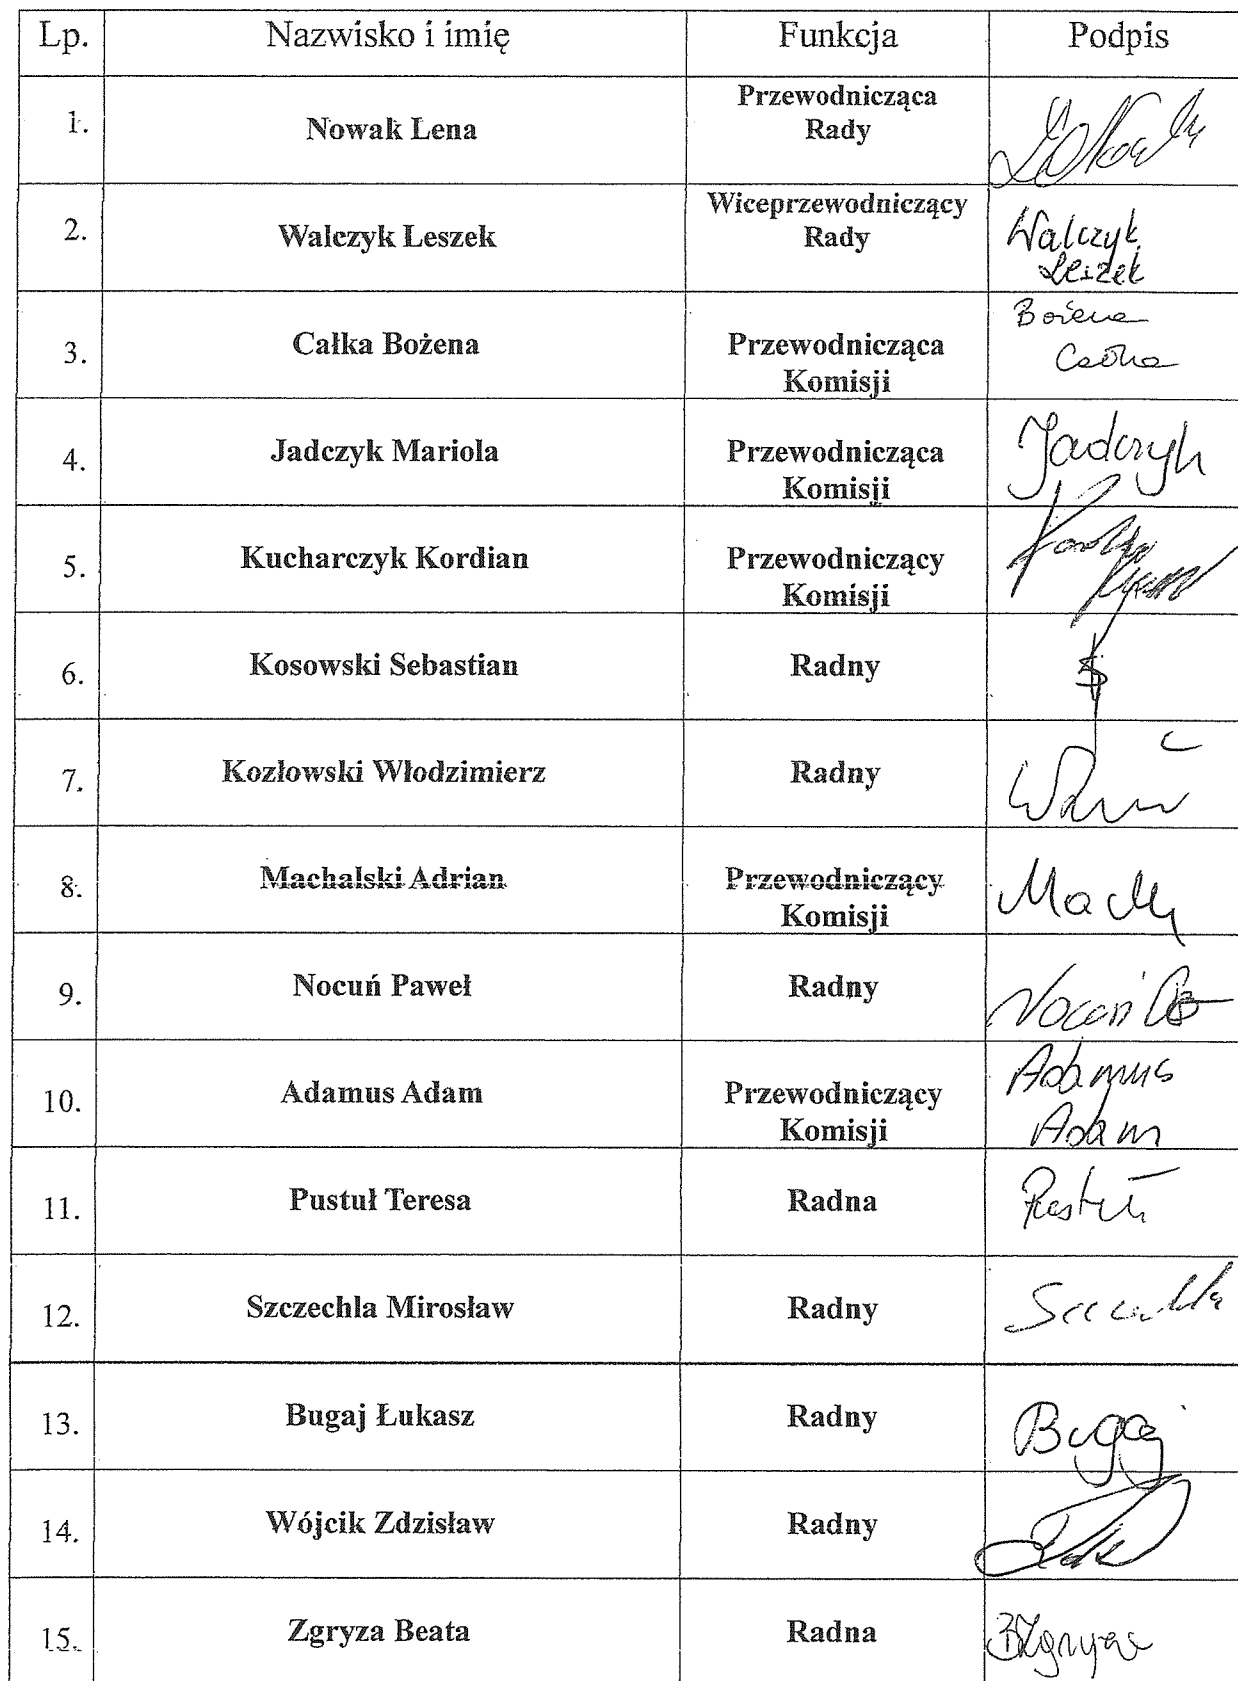 Lp. Nazwisko i imię Funkcja Podpis
1. Nowak Lena Przewodnicząca
Rady
2. Walczyk Leszek Wiceprzewodniczący
Rady Walczyk
Leszek
3. Całka Bożena Przewodnicząca
Komisji Bożena
Całka
4. Jadczyk Mariola Przewodnicząca
Komisji Jadczyk
5. Kucharczyk Kordian Przewodniczący
Komisji
6. Kosowski Sebastian Radny
7. Kozłowski Włodzimierz Radny
8. Machalski Adrian Przewodniczący
Komisji
9. Nocuń Paweł Radny Nocuń
10. Adamus Adam Przewodniczący
Komisji Adamus
Adam
11. Pustuł Teresa Radna Pustuł
12. Szczechla Mirosław Radny
13. Bugaj Łukasz Radny Bugaj
14. Wójcik Zdzisław Radny
15. Zgryza Beata Radna BZgryza